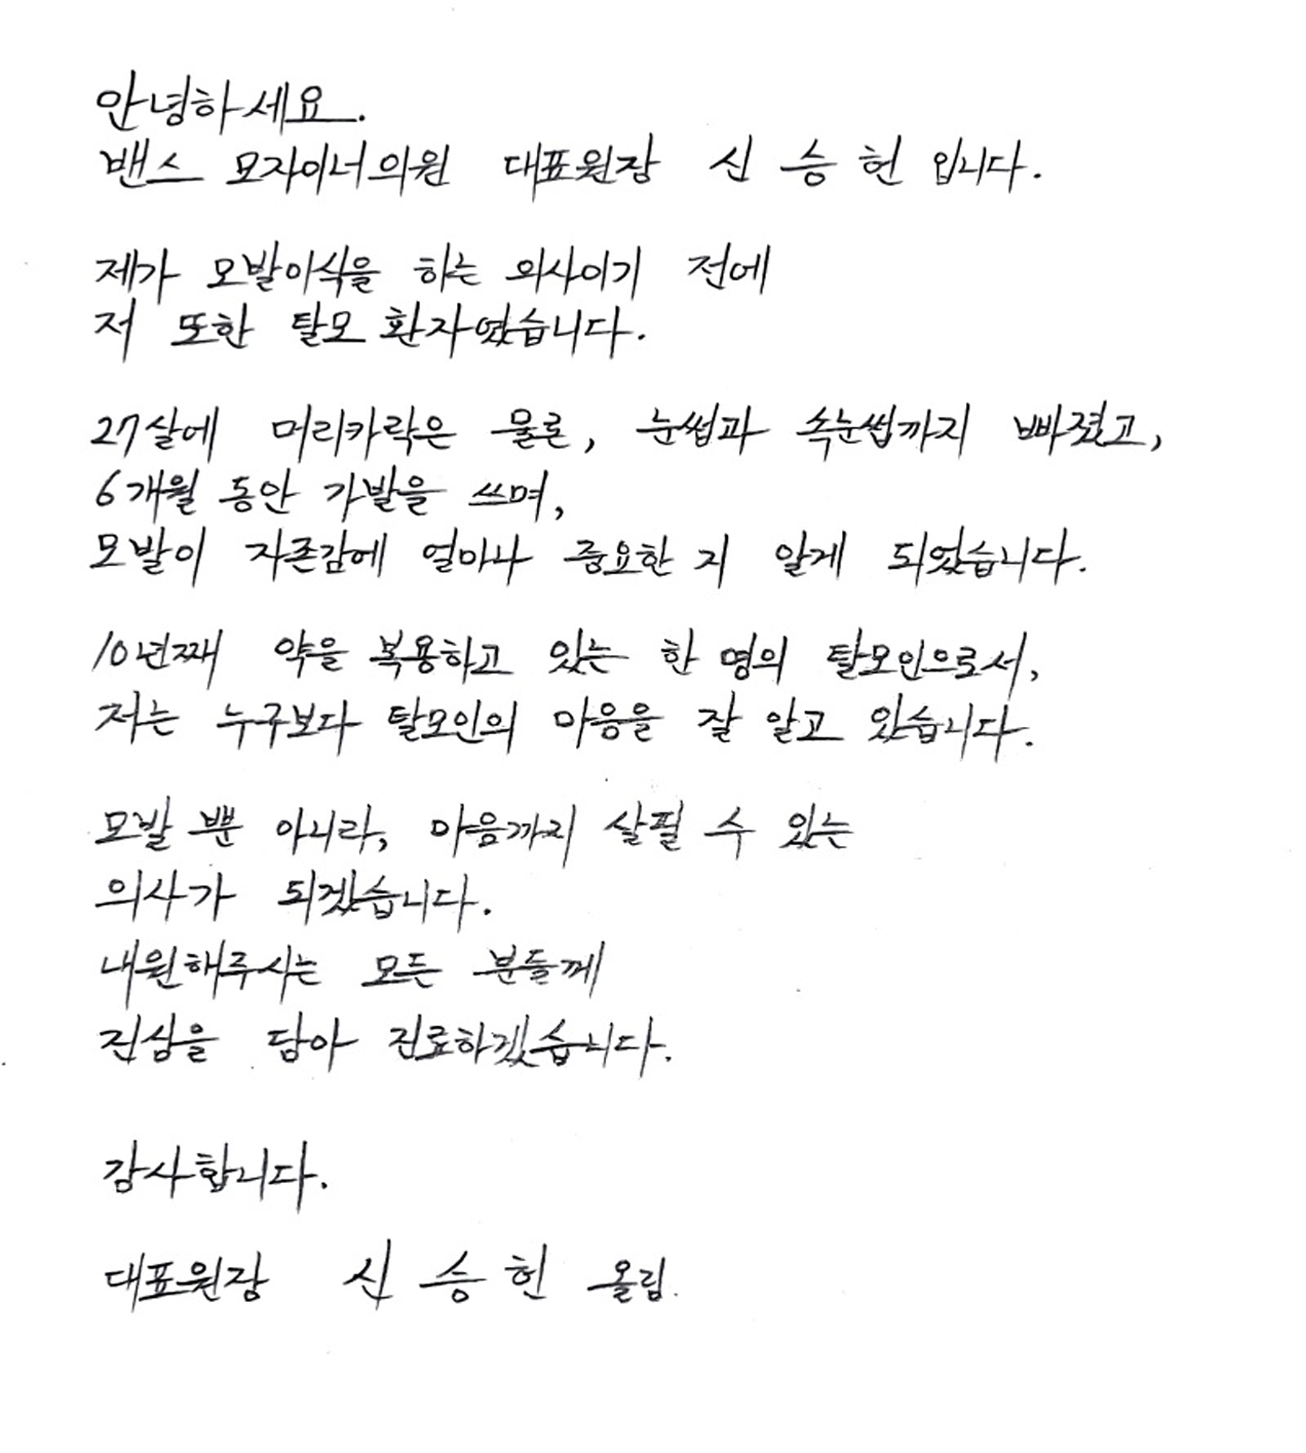 안녕하세요.
밴스 모자이너의원 대표원장 신 승 헌 입니다.
제가 모발이식을 하는 의사이기 전에
저 또한 탈모 환자였습니다.
27살에 머리카락은 물론, 눈썹과 속눈썹까지 빠졌고,
6개월 동안 가발을 쓰며,
모발이 자존감에 얼마나 중요한 지 알게 되었습니다.
10년째 약을 복용하고 있는 한 명의 탈모인으로서,
저는 누구보다 탈모인의 마음을 잘 알고 있습니다.
모발 뿐 아니라, 마음까지 살필 수 있는
의사가 되겠습니다.
내원해주시는 모든 분들께
진심을 담아 진료하겠습니다.
감사합니다.
대표원장 신 승 헌 올림.